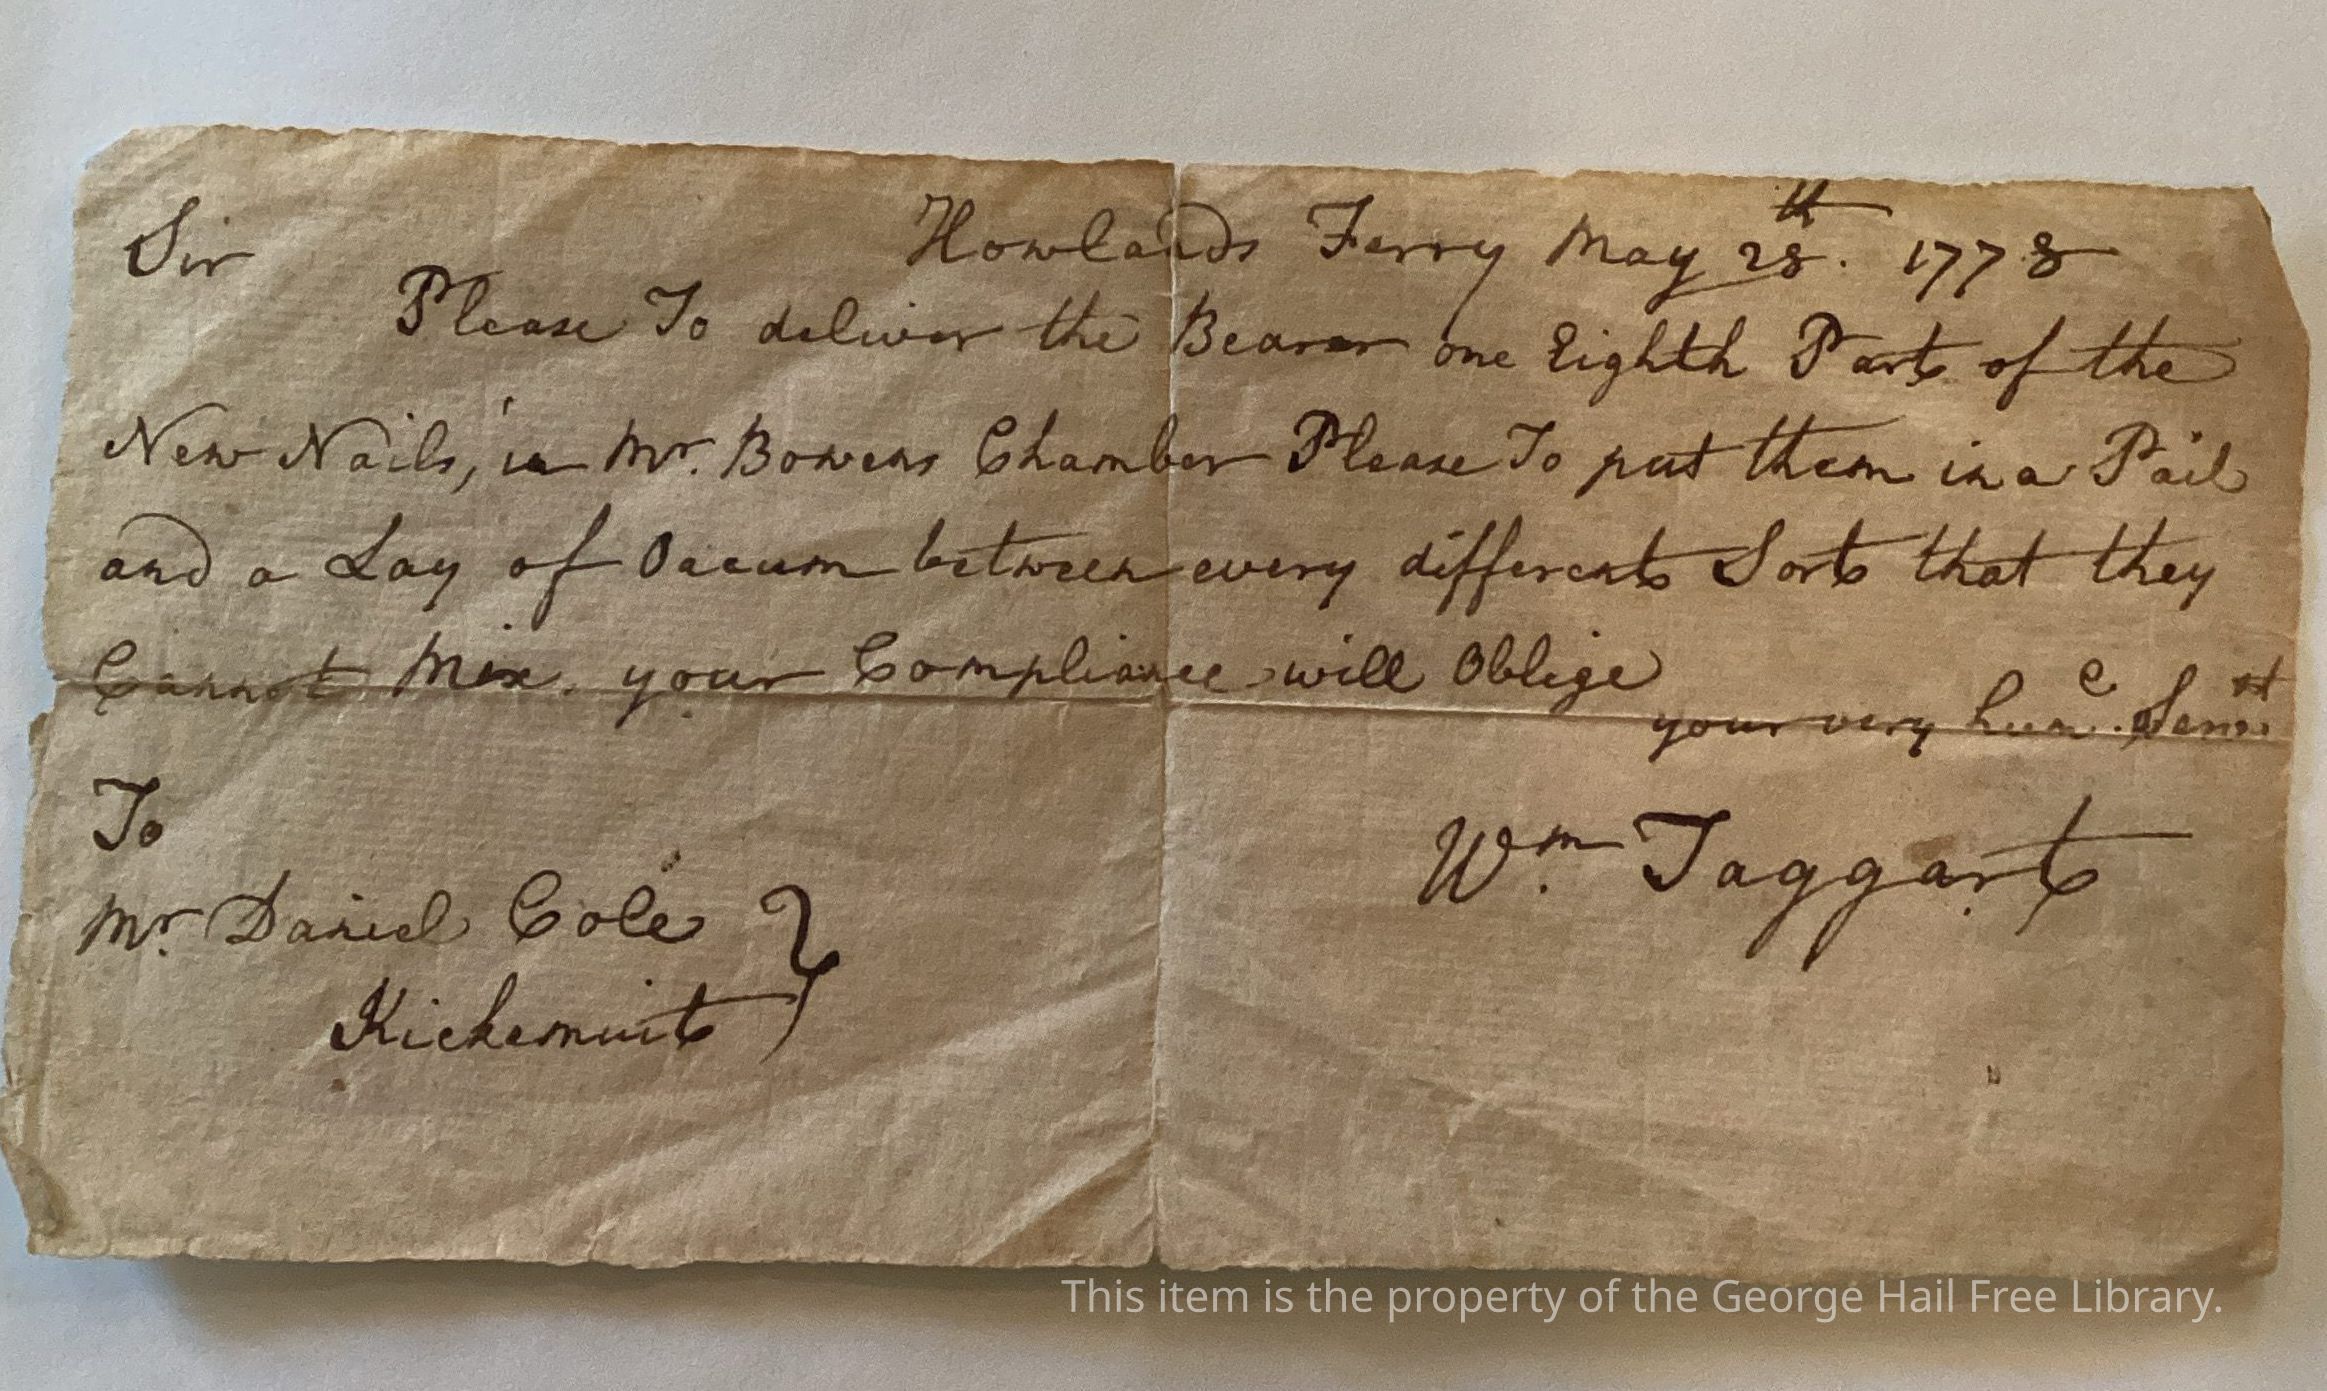 Howlands Ferry May 28th. 1778
Sir
Please To deliver the Bearer one Eighth Part of the
New Nails, in Mr. Bowens Chamber Please To put them in a Pail
and a Lay of Oacum between every different Sort that they
Cannot Mix. your Compliance will Oblige
your very hume. Servt
Wm Taggart
To
Mr. Daniel Cole
Kickemuit
This item is the property of the George Hail Free Library.